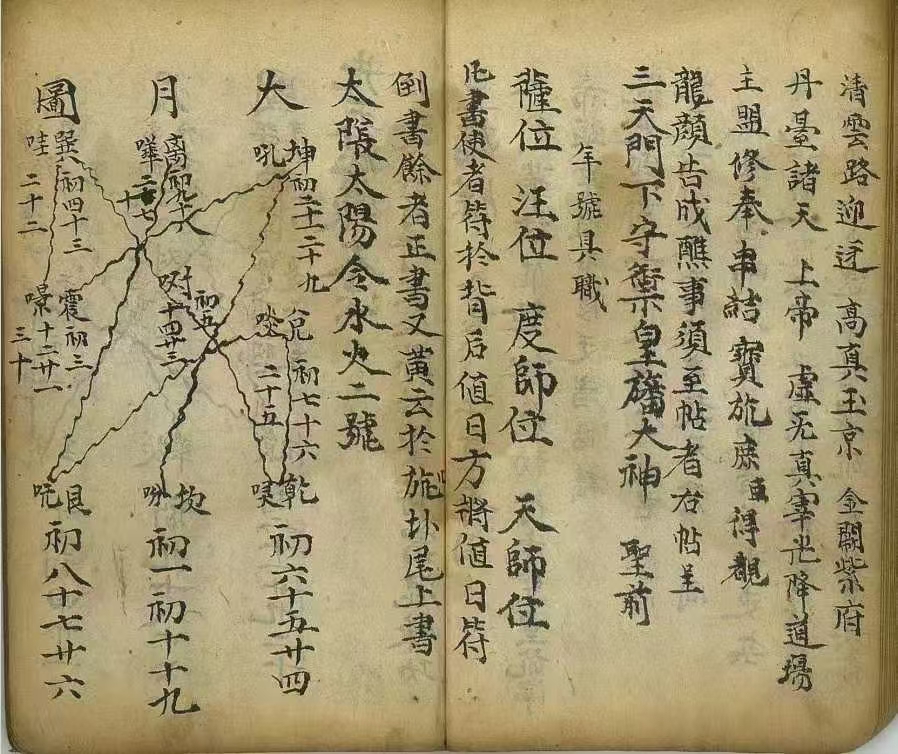 清雲路迎迓 高真玉京 金闕紫府
丹臺諸天 上帝 虛无真宰光降道場
主盟修奉 寶旌庶 得覩
龍顏告成醮事須至帖者右帖呈
三天門下守禦皇旛大神 聖前
年號具職
薩位 汪位 度師位 天師位
凡書使者符於背后值日方將值日符
倒書餘者正書又黃云於旐卦尾上書
太陰太陽令水火二號
大月圖
坤初二十二十九
吼
離初九十
嘩二十七
巽初四十三
哇二十二
震初三
㬌十二廿一三十
初五
十四廿三
兌初七十六
啖二十五
乾初六十五廿四
坎初一初十十九
吩
艮初八十七廿六
吒